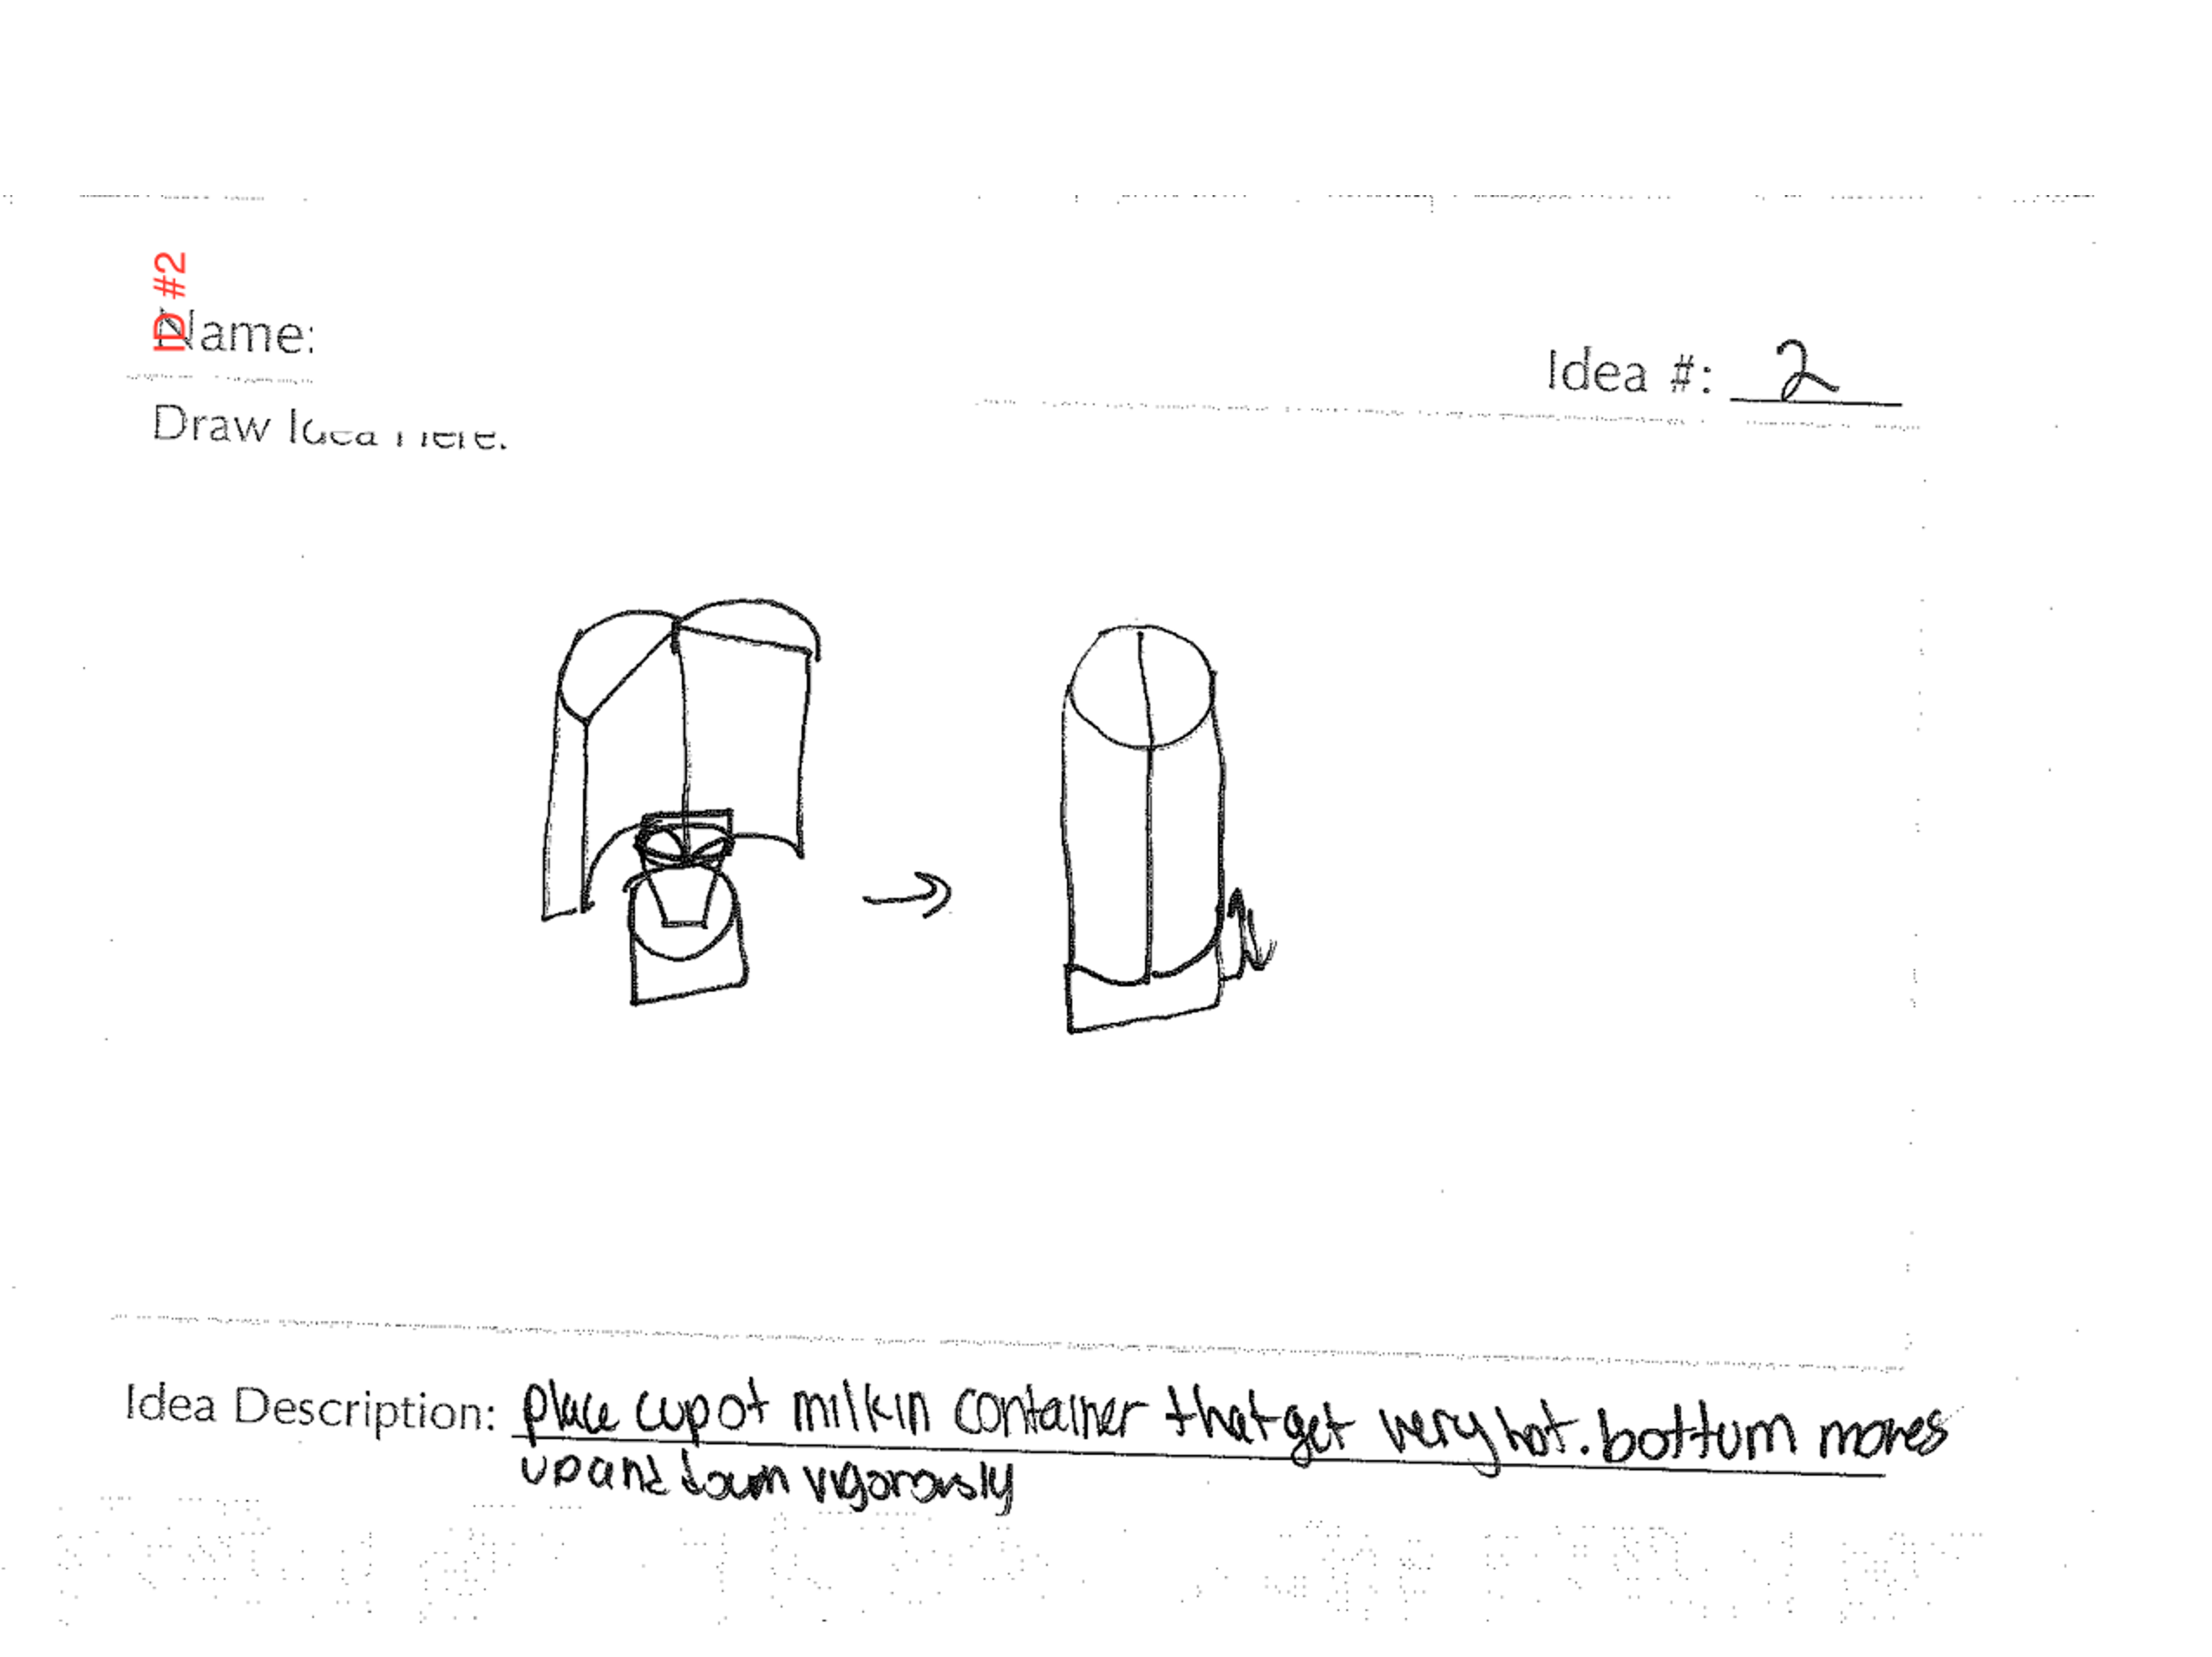 ID #2
Name:
Idea #: 2
Draw Idea Here:
Idea Description: place cup of milk in container that get very hot. bottom moves
up and down vigorously